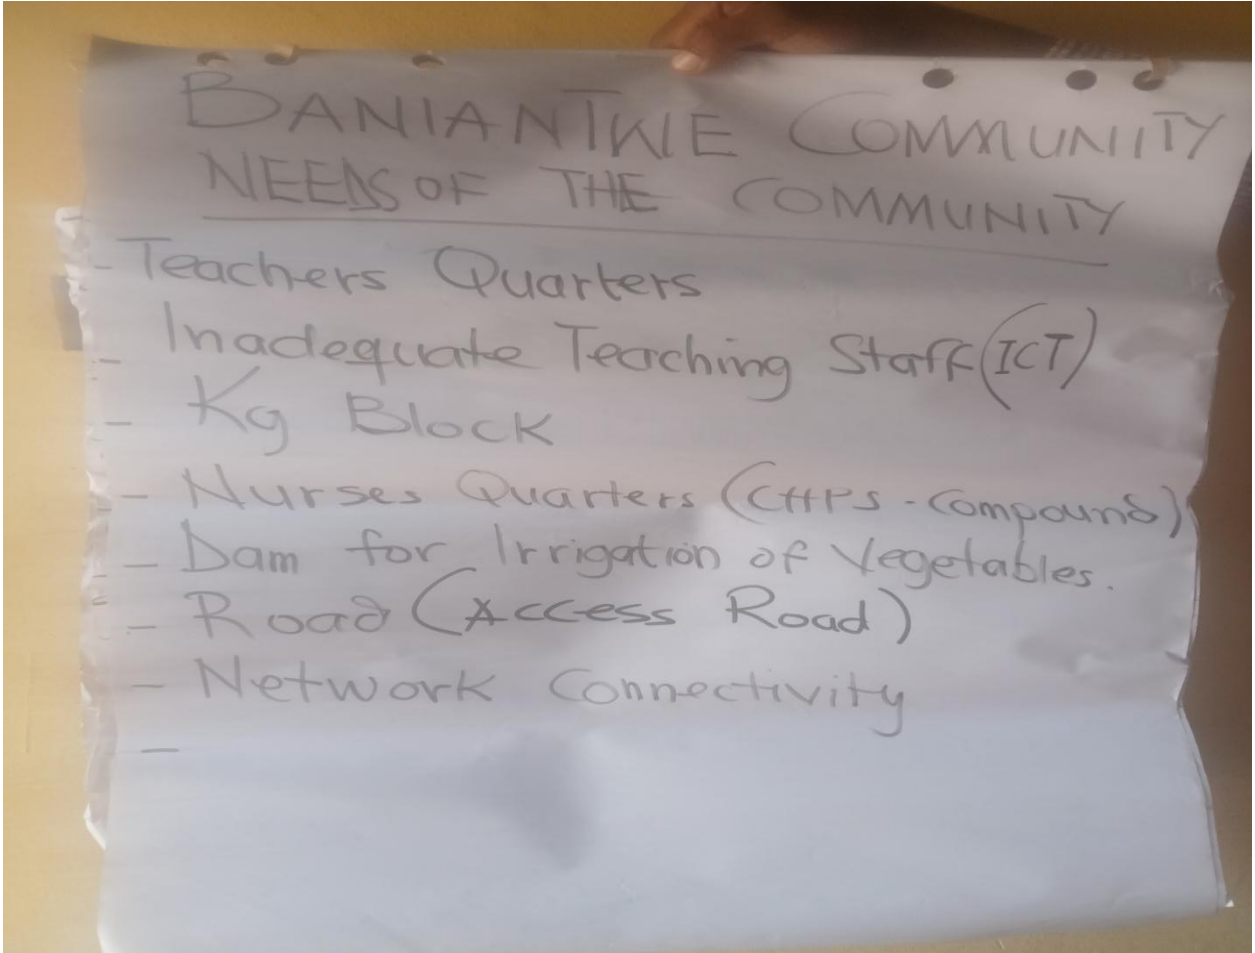 BANIANTWE COMMUNITY
NEEDS OF THE COMMUNITY
- Teachers Quarters
- Inadequate Teaching Staff (ICT)
- Kg Block
- Nurses Quarters (CHPS - Compound)
- Dam for Irrigation of Vegetables.
- Road (Access Road)
- Network Connectivity
-